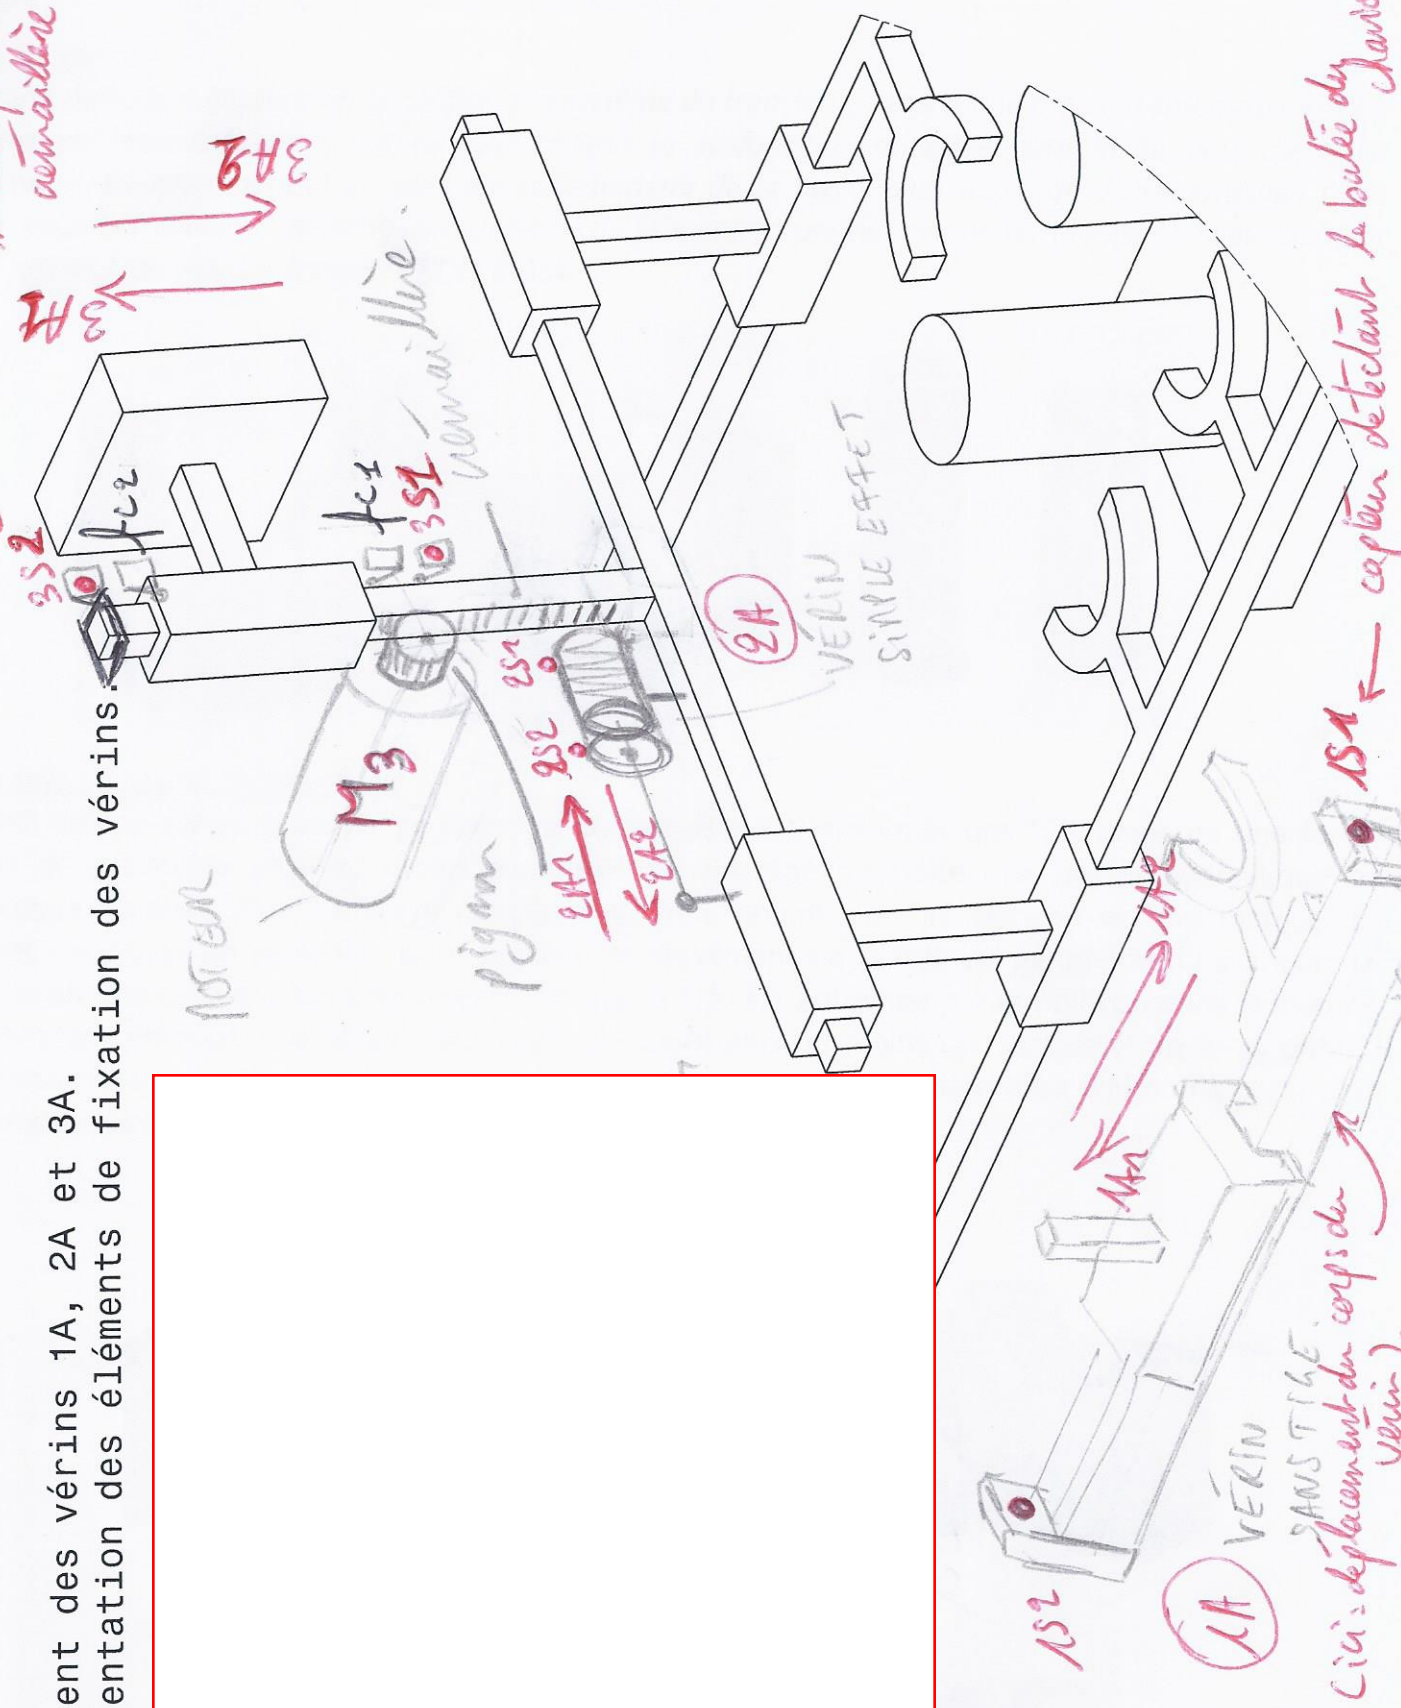 ent des vérins 1A, 2A et 3A.
entation des éléments de fixation des vérins.
crémaillère
3A2
3A1
3S2
fc2
fc1
3S1
crémaillère
M3
MOTEUR
pignon
2S1
2S2
2A1
2A2
2A
VÉRIN
SIMPLE EFFET
1A2
1A1
1S1
capteur détectant la butée du
1S2
1A
VÉRIN
SANS TIGE
(ici : déplacement du corps du
vérin)